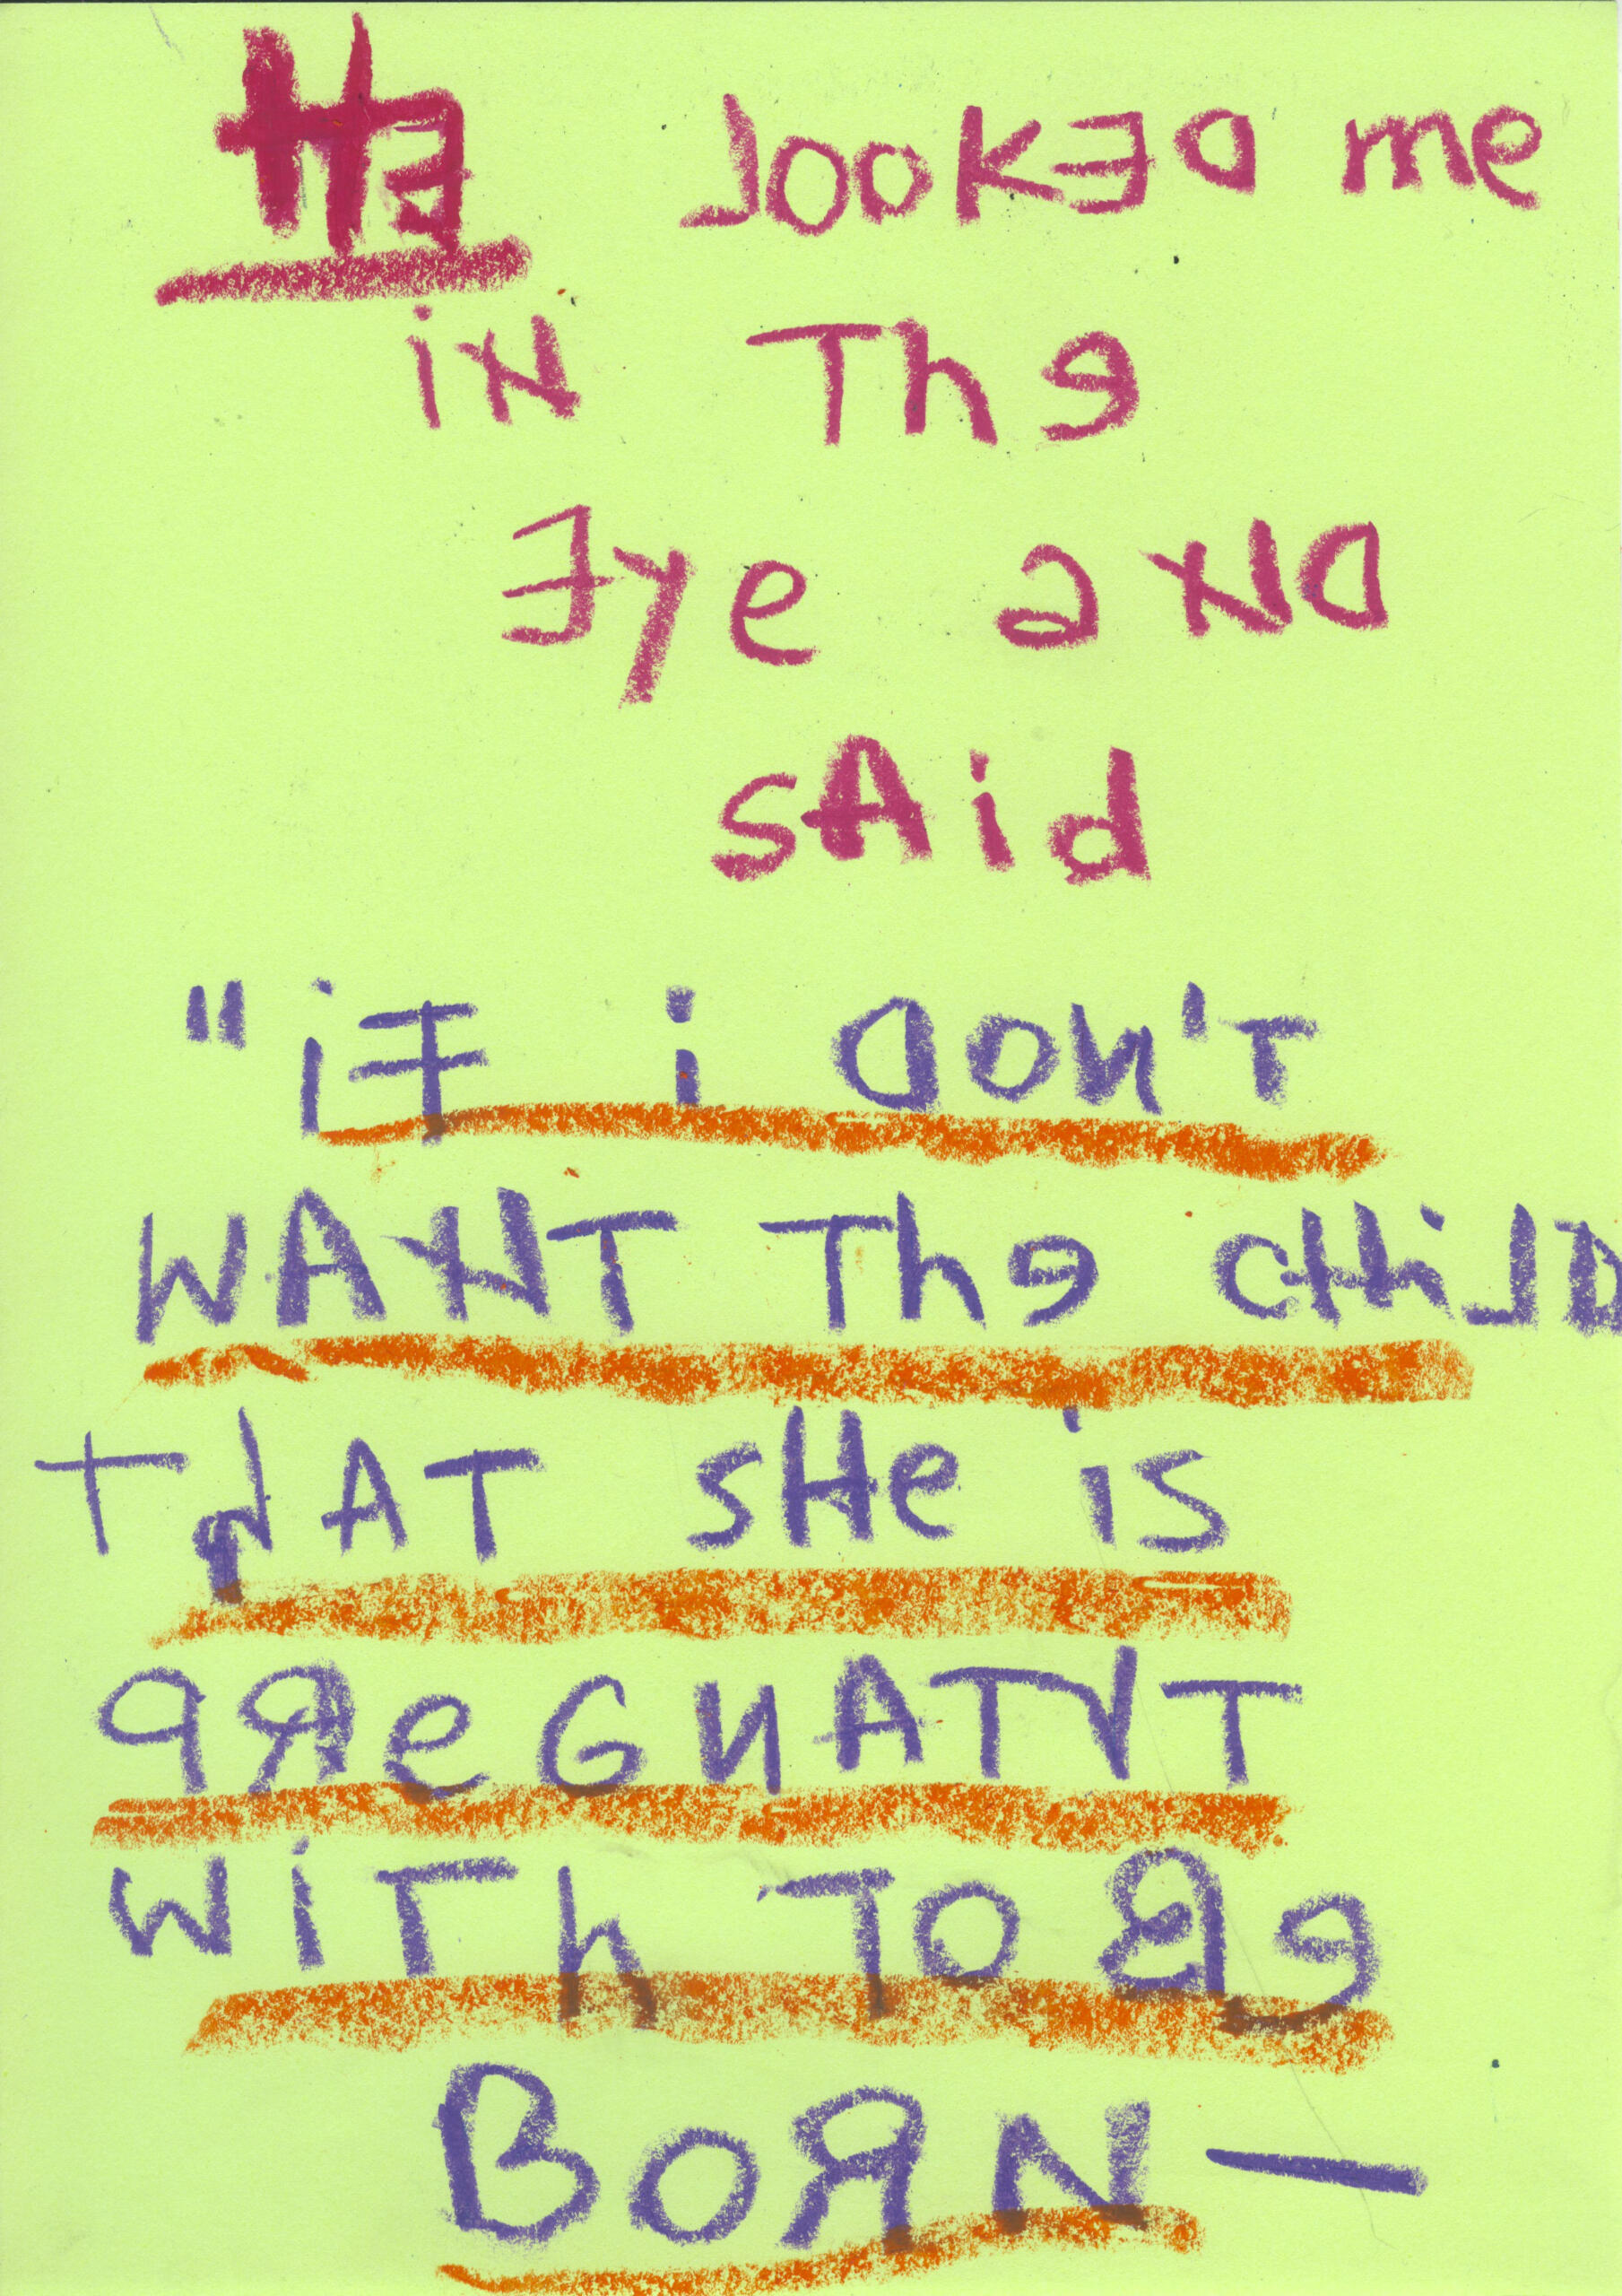 HE looked me
iN The
Eye aND
sAid
"iF i DoN'T
WANT The cHilD
THAT sHe is
PReGNATNT
WiTh To Be
BoRN—